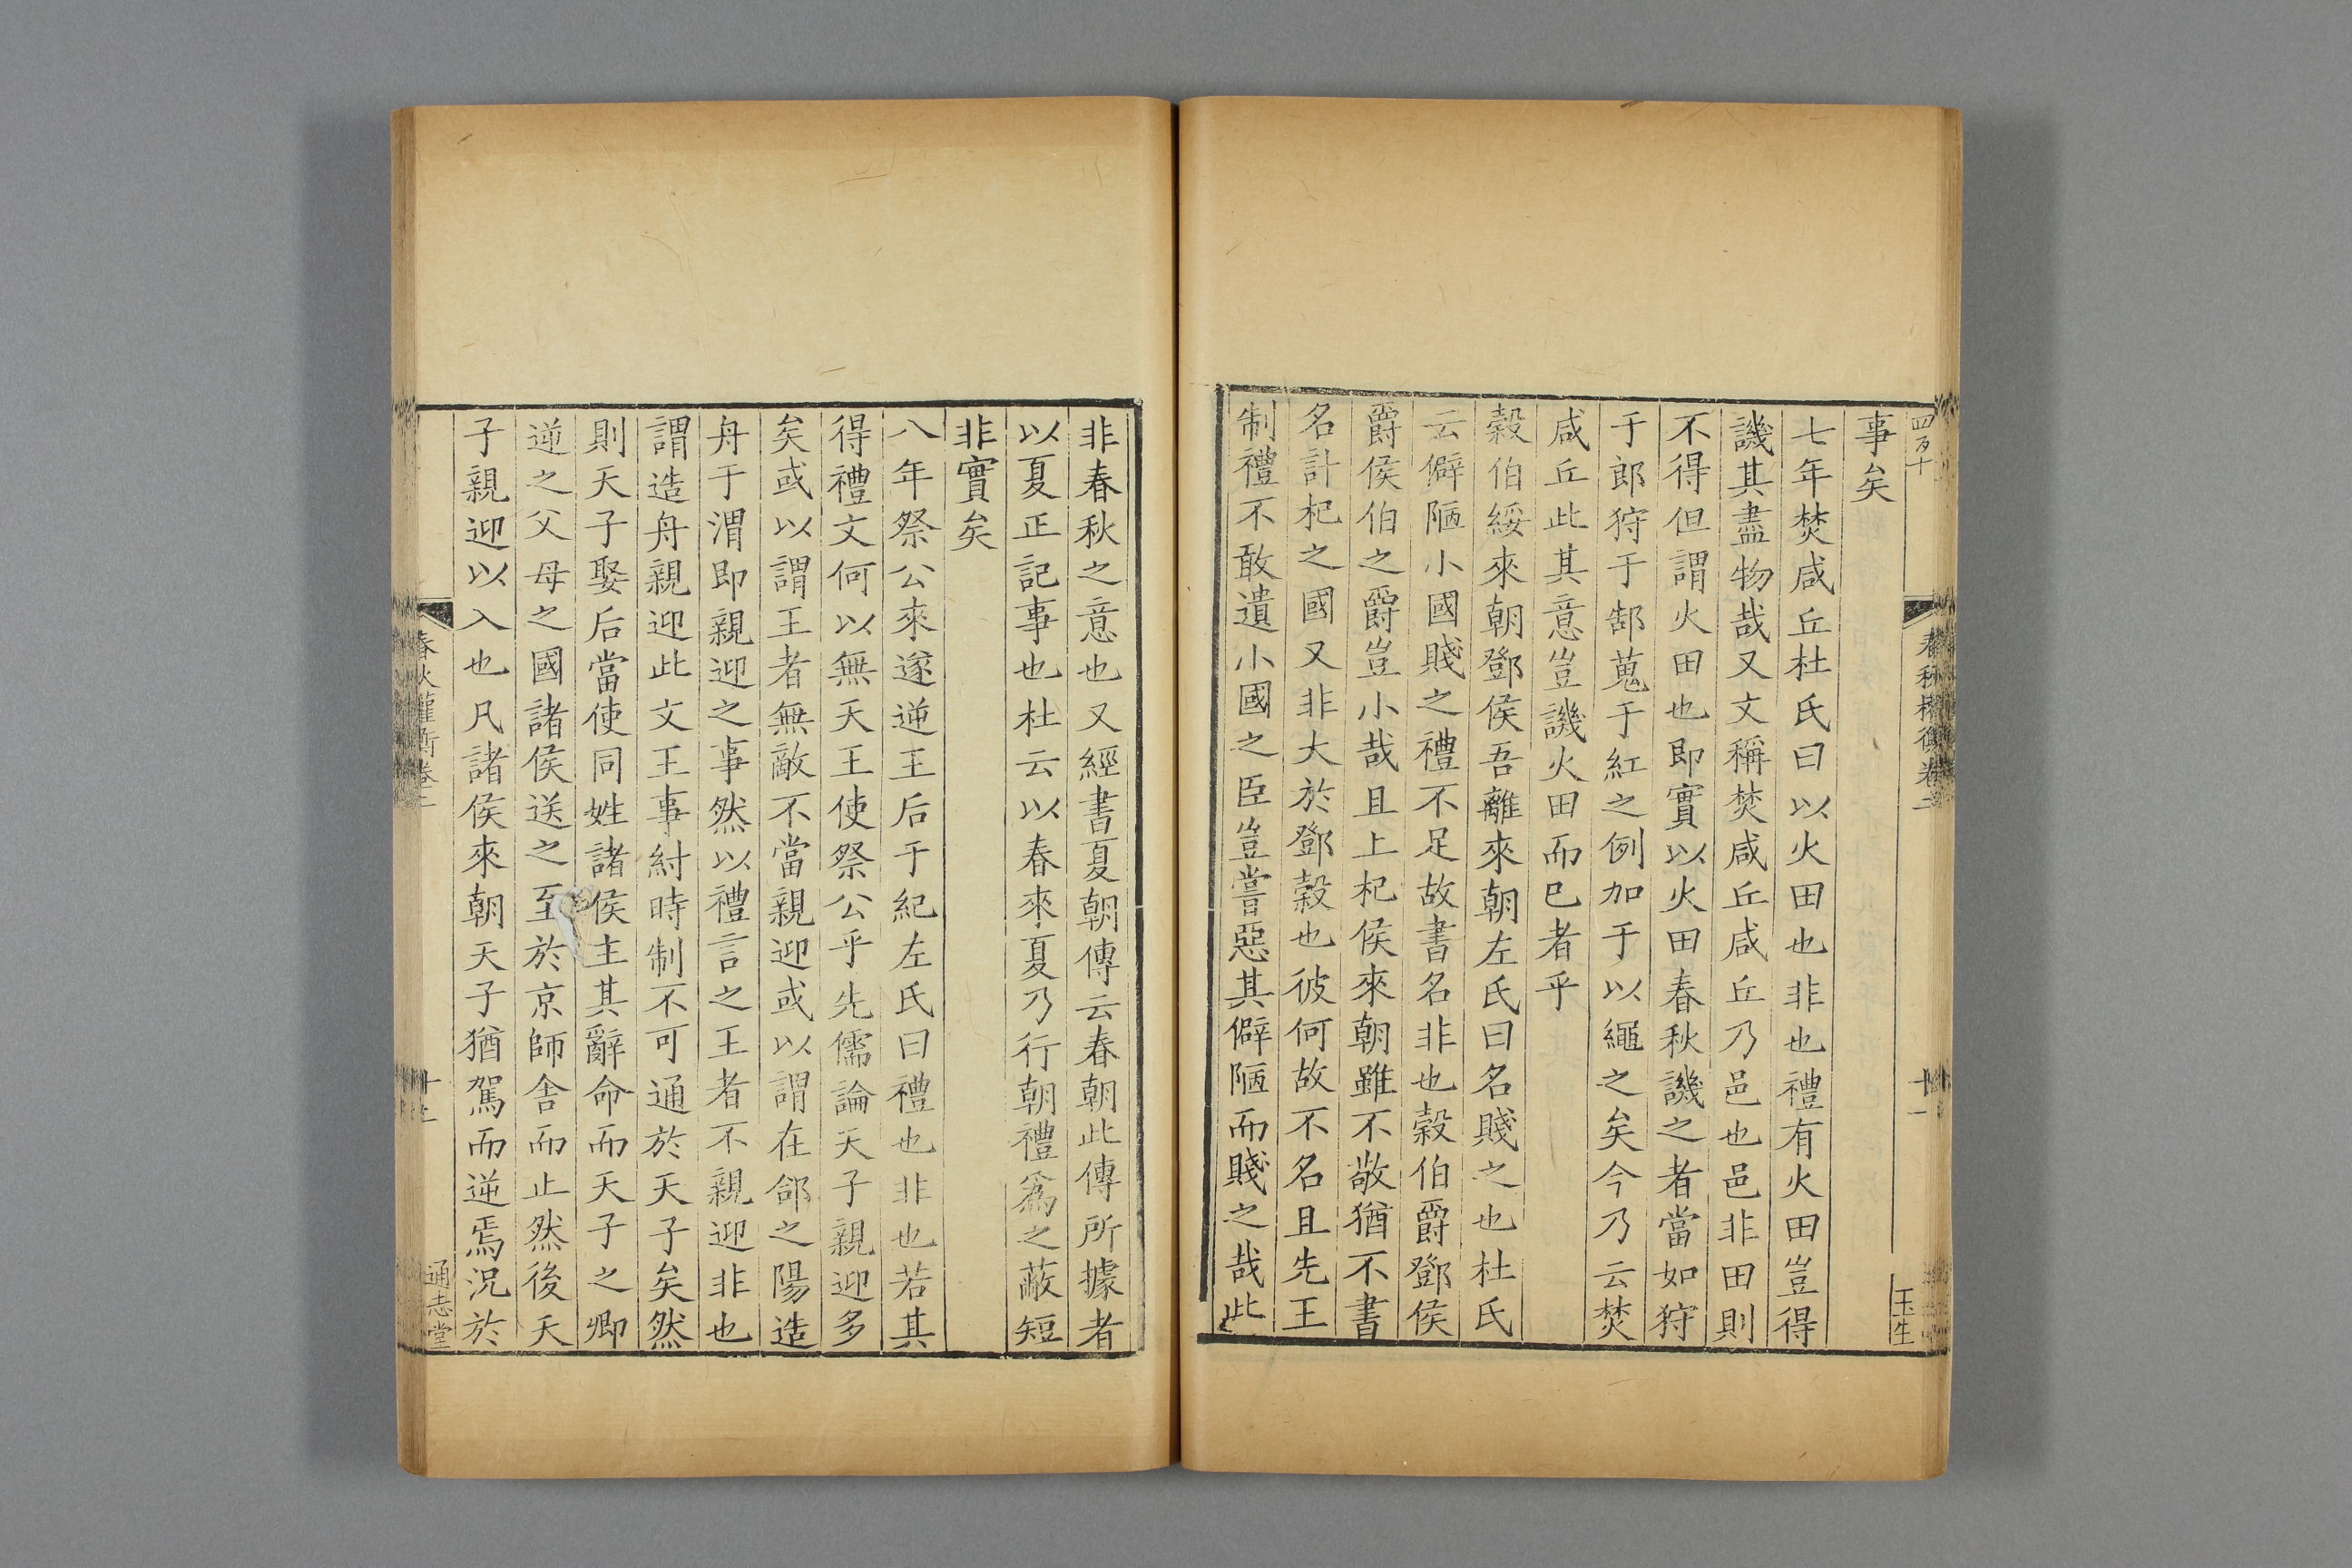 四百十
春秋權衡卷二
十一
玉生
事矣
七年焚咸丘杜氏曰以火田也非也禮有火田豈得
譏其盡物哉又文稱焚咸丘咸丘乃邑也邑非田則
不得但謂火田也即實以火田春秋譏之者當如狩
于郎狩于郜蒐于紅之例加于以繩之矣今乃云焚
咸丘此其意豈譏火田而已者乎
榖伯綏來朝鄧侯吾離來朝左氏曰名賤之也杜氏
云僻陋小國賤之禮不足故書名非也榖伯爵鄧侯
爵侯伯之爵豈小哉且上杞侯來朝雖不敬猶不書
名計杞之國又非大於鄧榖也彼何故不名且先王
制禮不敢遺小國之臣豈嘗惡其僻陋而賤之哉此
非春秋之意也又經書夏朝傳云春朝此傳所據者
以夏正記事也杜云以春來夏乃行朝禮爲之蔽短
非實矣
八年祭公來遂逆王后于紀左氏曰禮也非也若其
得禮文何以無天王使祭公乎先儒論天子親迎多
矣或以謂王者無敵不當親迎或以謂在郃之陽造
舟于渭即親迎之事然以禮言之王者不親迎非也
謂造舟親迎此文王事紂時制不可通於天子矣然
則天子娶后當使同姓諸侯主其辭命而天子之卿
逆之父母之國諸侯送之至於京師舍而止然後天
子親迎以入也凡諸侯來朝天子猶駕而逆焉況於
春秋權衡卷二
通志堂